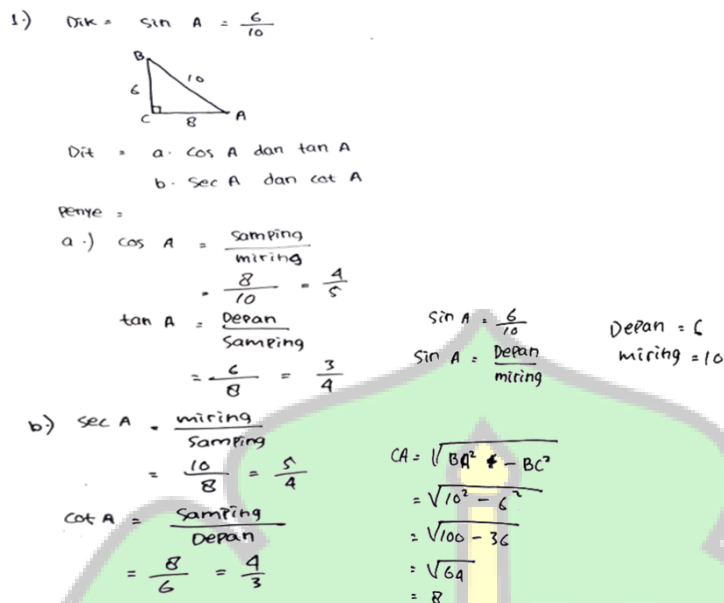 1.) Dik = Sin A = 6/10
B
6 10
C 8 A
Dit = a. Cos A dan tan A
b. Sec A dan cot A
Penye =
a.) cos A = Samping/miring
= 8/10 = 4/5
tan A = Depan/Samping
= 6/8 = 3/4
b.) sec A = miring/samping
= 10/8 = 5/4
Cot A = Samping/Depan
= 8/6 = 4/3
Sin A = 6/10
Sin A = Depan/miring
Depan = 6
miring = 10
CA = √BA² - BC²
= √10² - 6²
= √100 - 36
= √64
= 8